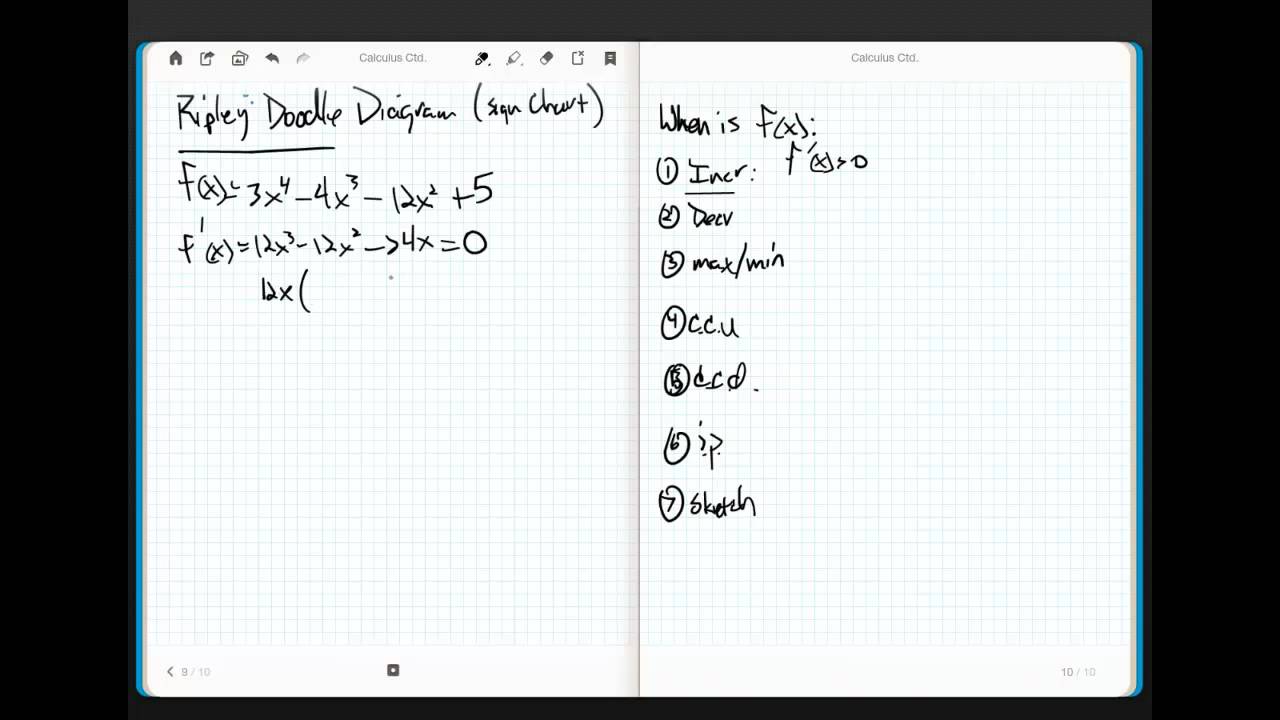 Calculus Ctd.
Ripley Doodle Diagram (sign Chart)
f(x)= 3x⁴ - 4x³ - 12x² + 5
f'(x) = 12x³ - 12x² - 24x = 0
12x (
9 / 10
Calculus Ctd.
When is f(x):
① Incr: f'(x) > 0
② Decr
③ max/min
④ c.c.u
⑤ c.c.d.
⑥ i.p.
⑦ sketch
10 / 10